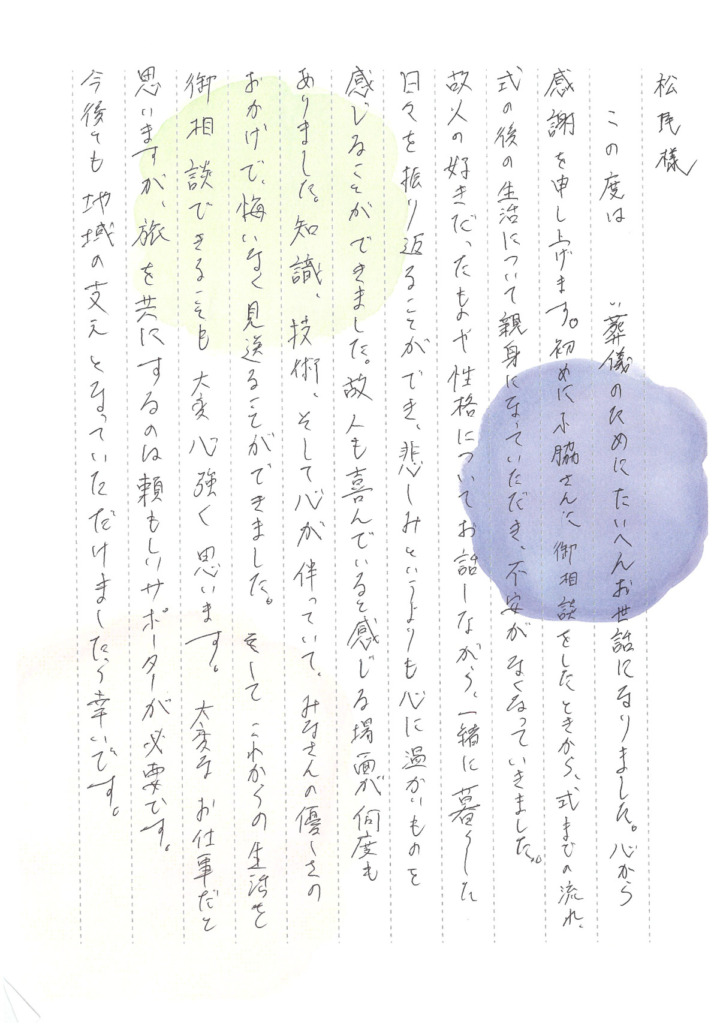 松民様
この度は　　　い葬儀のためにたいへんお世話になりました。心から
感謝を申し上げます。初めに小脇さんに御相談をしたときから、式までの流れ、
式の後の生活について親身になっていただき、不安がなくなっていきました。
故人の好きだったものや性格についてお話しながら、一緒に暮らした
日々を振り返ることができ、悲しみというよりも心に温かいものを
感じることができました。故人も喜んでいると感じる場面が何度も
ありました。知識、技術、そして心が伴っていて、みなさんの優しさの
おかげで、悔いなく見送ることができました。そしてこれからの生活を
御相談できることも大変心強く思います。大変なお仕事だと
思いますが、旅を共にするのは頼もしいサポーターが必要です。
今後とも地域の支えとなっていただけましたら幸いです。